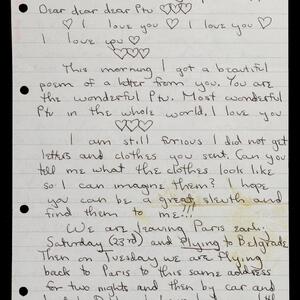 Dear dear dear Ptu ♡♡♡
♡ I love you ♡ I love you ♡
I love you ♡
♡♡♡
This morning I got a beautiful
poem of a letter from you. You are
the wonderful Ptu. Most wonderful
Ptu in the whole world, I love you
♡♡♡
I am still furious I did not get
letters and clothes you sent. Can you
tell me what the clothes look like
so I can imagine them? I hope
you can be a great sleuth and
find them to me!!!
We are leaving Paris early,
Saturday (23rd) and flying to Belgrade
Then on Tuesday we are flying
back to Paris to this same address
for two nights and then by car and